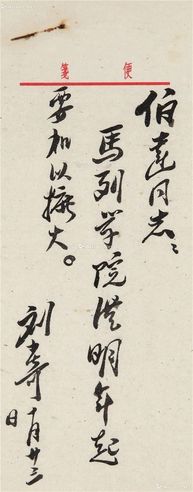 便箋
伯达同志：
馬列学院從明年起
要加以擴大。
刘少奇 十月廿三
日